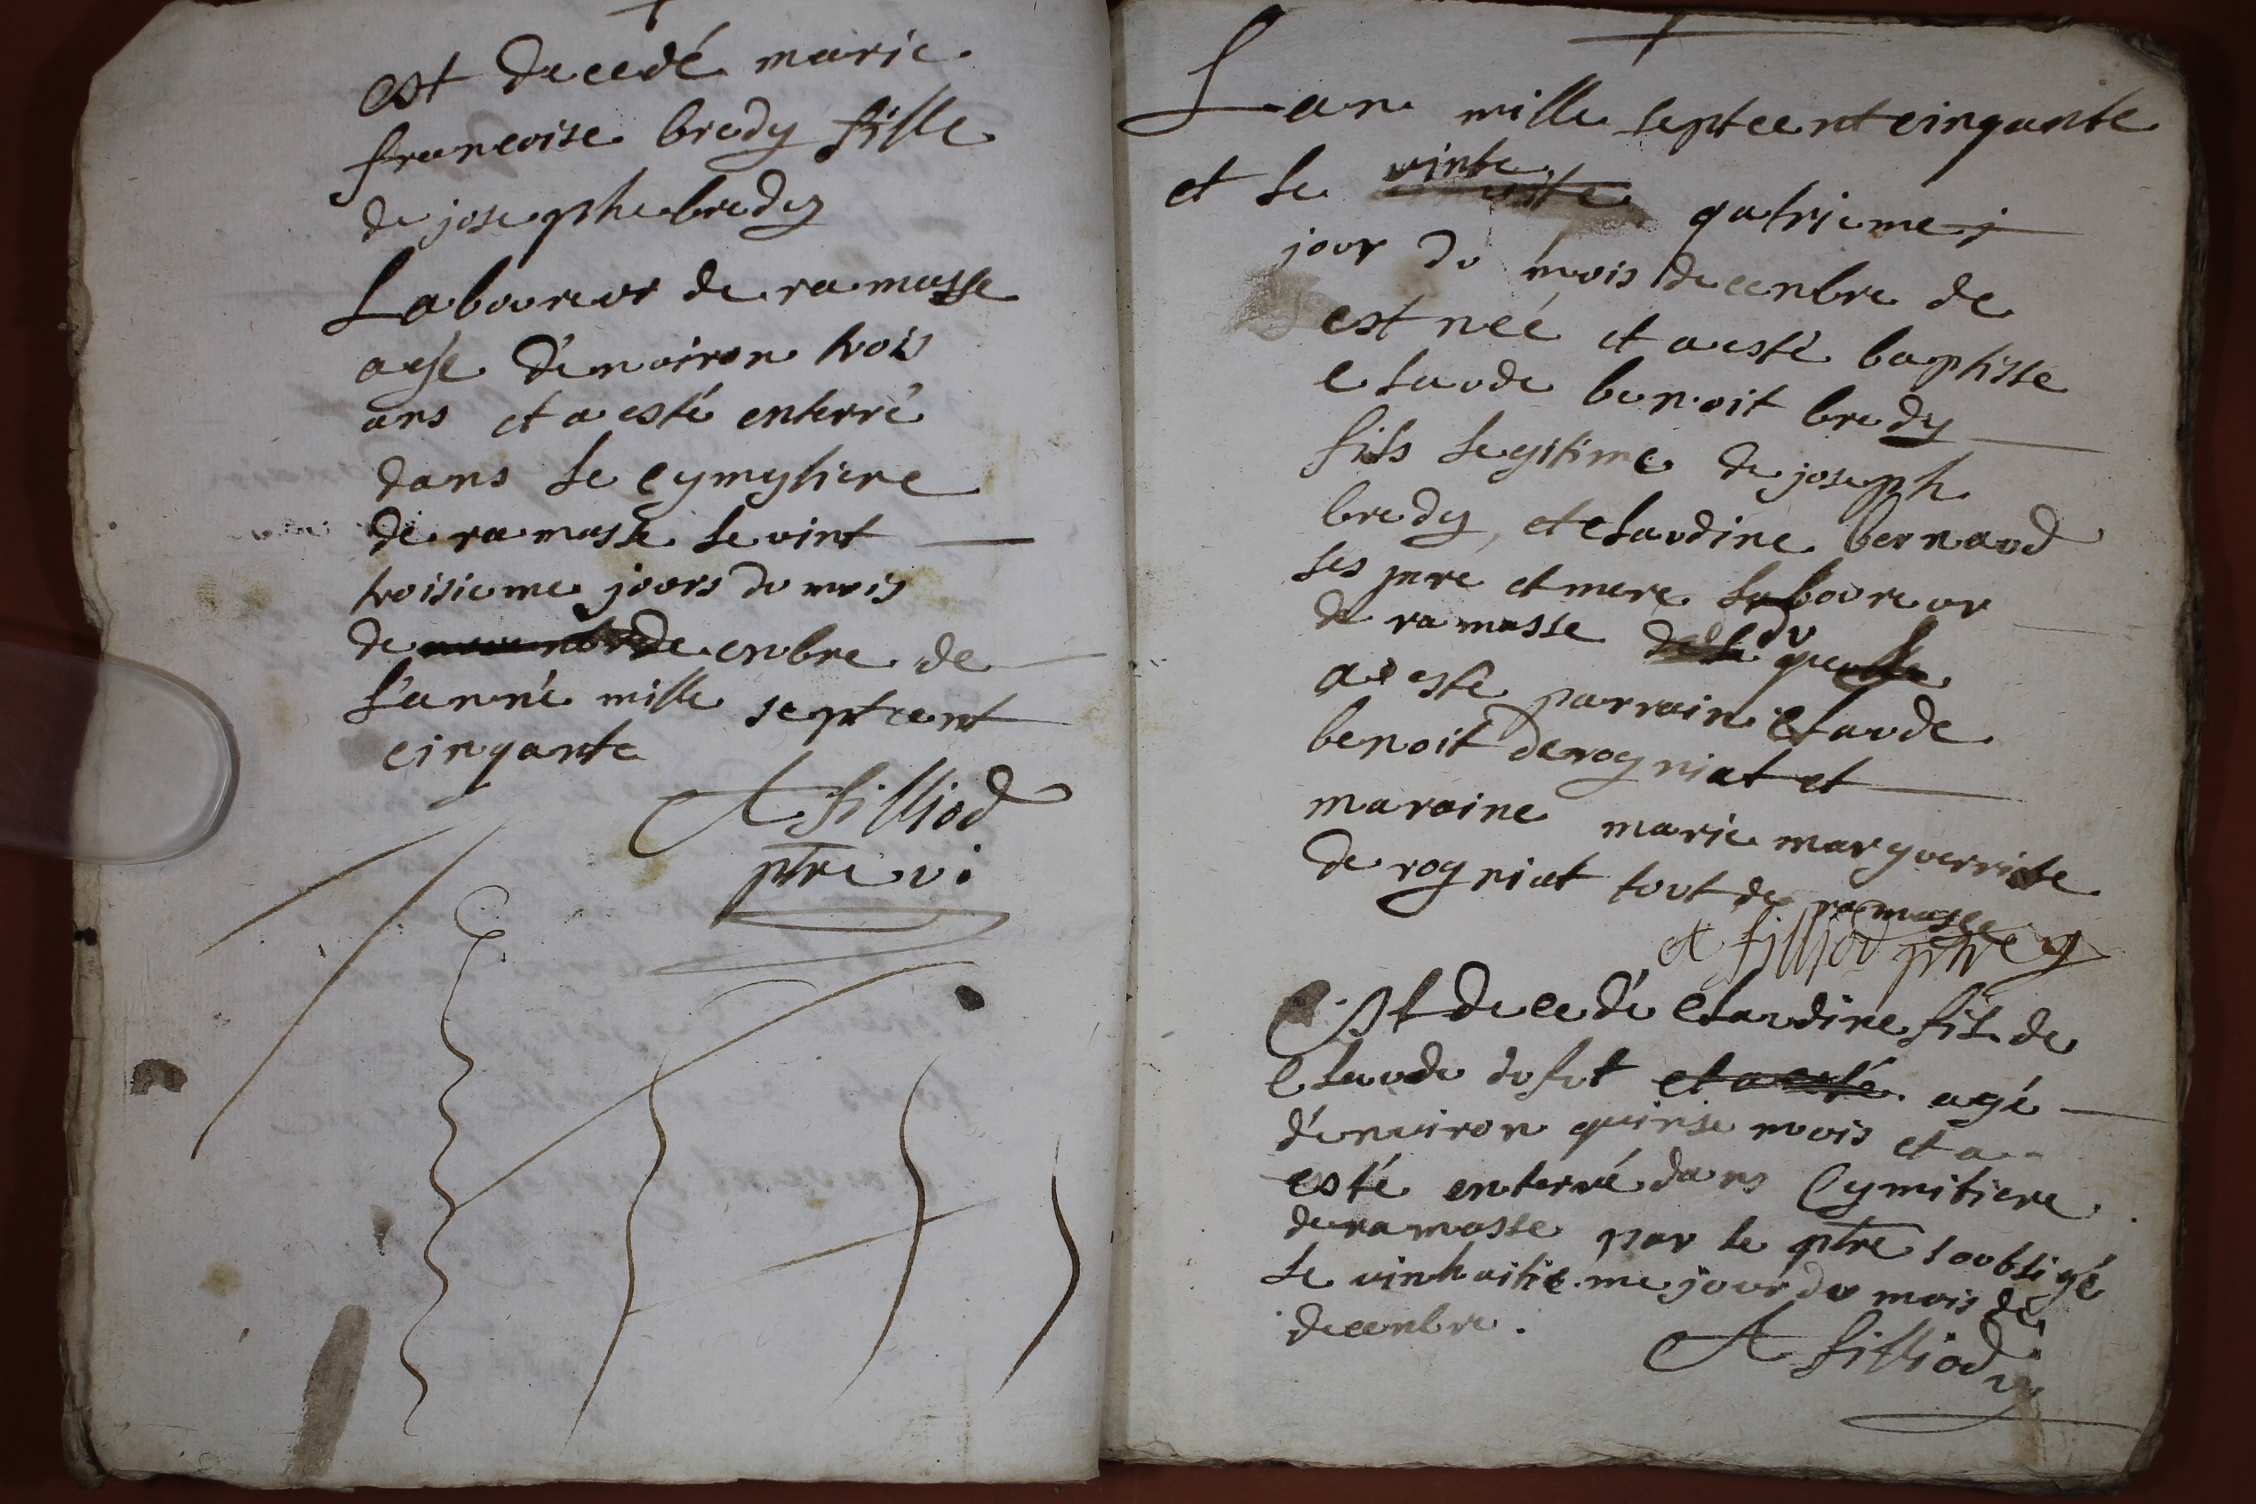 est decedé marie
francoise bredy fille
de josephe bredy
Laboureur de ramasse
agé d'environ trois
ans et a esté enterré
dans le cymytiere
de ramasse le vint
troisieme jours du mois
de decenbre de
l'année mille septcent
cinqante
A filliod
ptre vi
Lan mille septcent cinqante
et le vinte qatrieme j
jour du mois decenbre de
est néé et a esté baptisse
claude benoit bredy
fils legitime de joseph
bredy, et claudine bernaud
ses pere et mere laboureur
de ramasse du quel
a esté parrain claude
benoit derogniat et
maraine marie marguerritte
de rogniat tout de ramasse
A filliod ptre
Est decedé claudine fil de
claude dufut et a esté agé
d'environ quinse mois et a
esté enterré dans Cymitiere
de ramasse par le ptre soubsigé
le vinthuitieme jour du mois de
decenbre.
A filliod